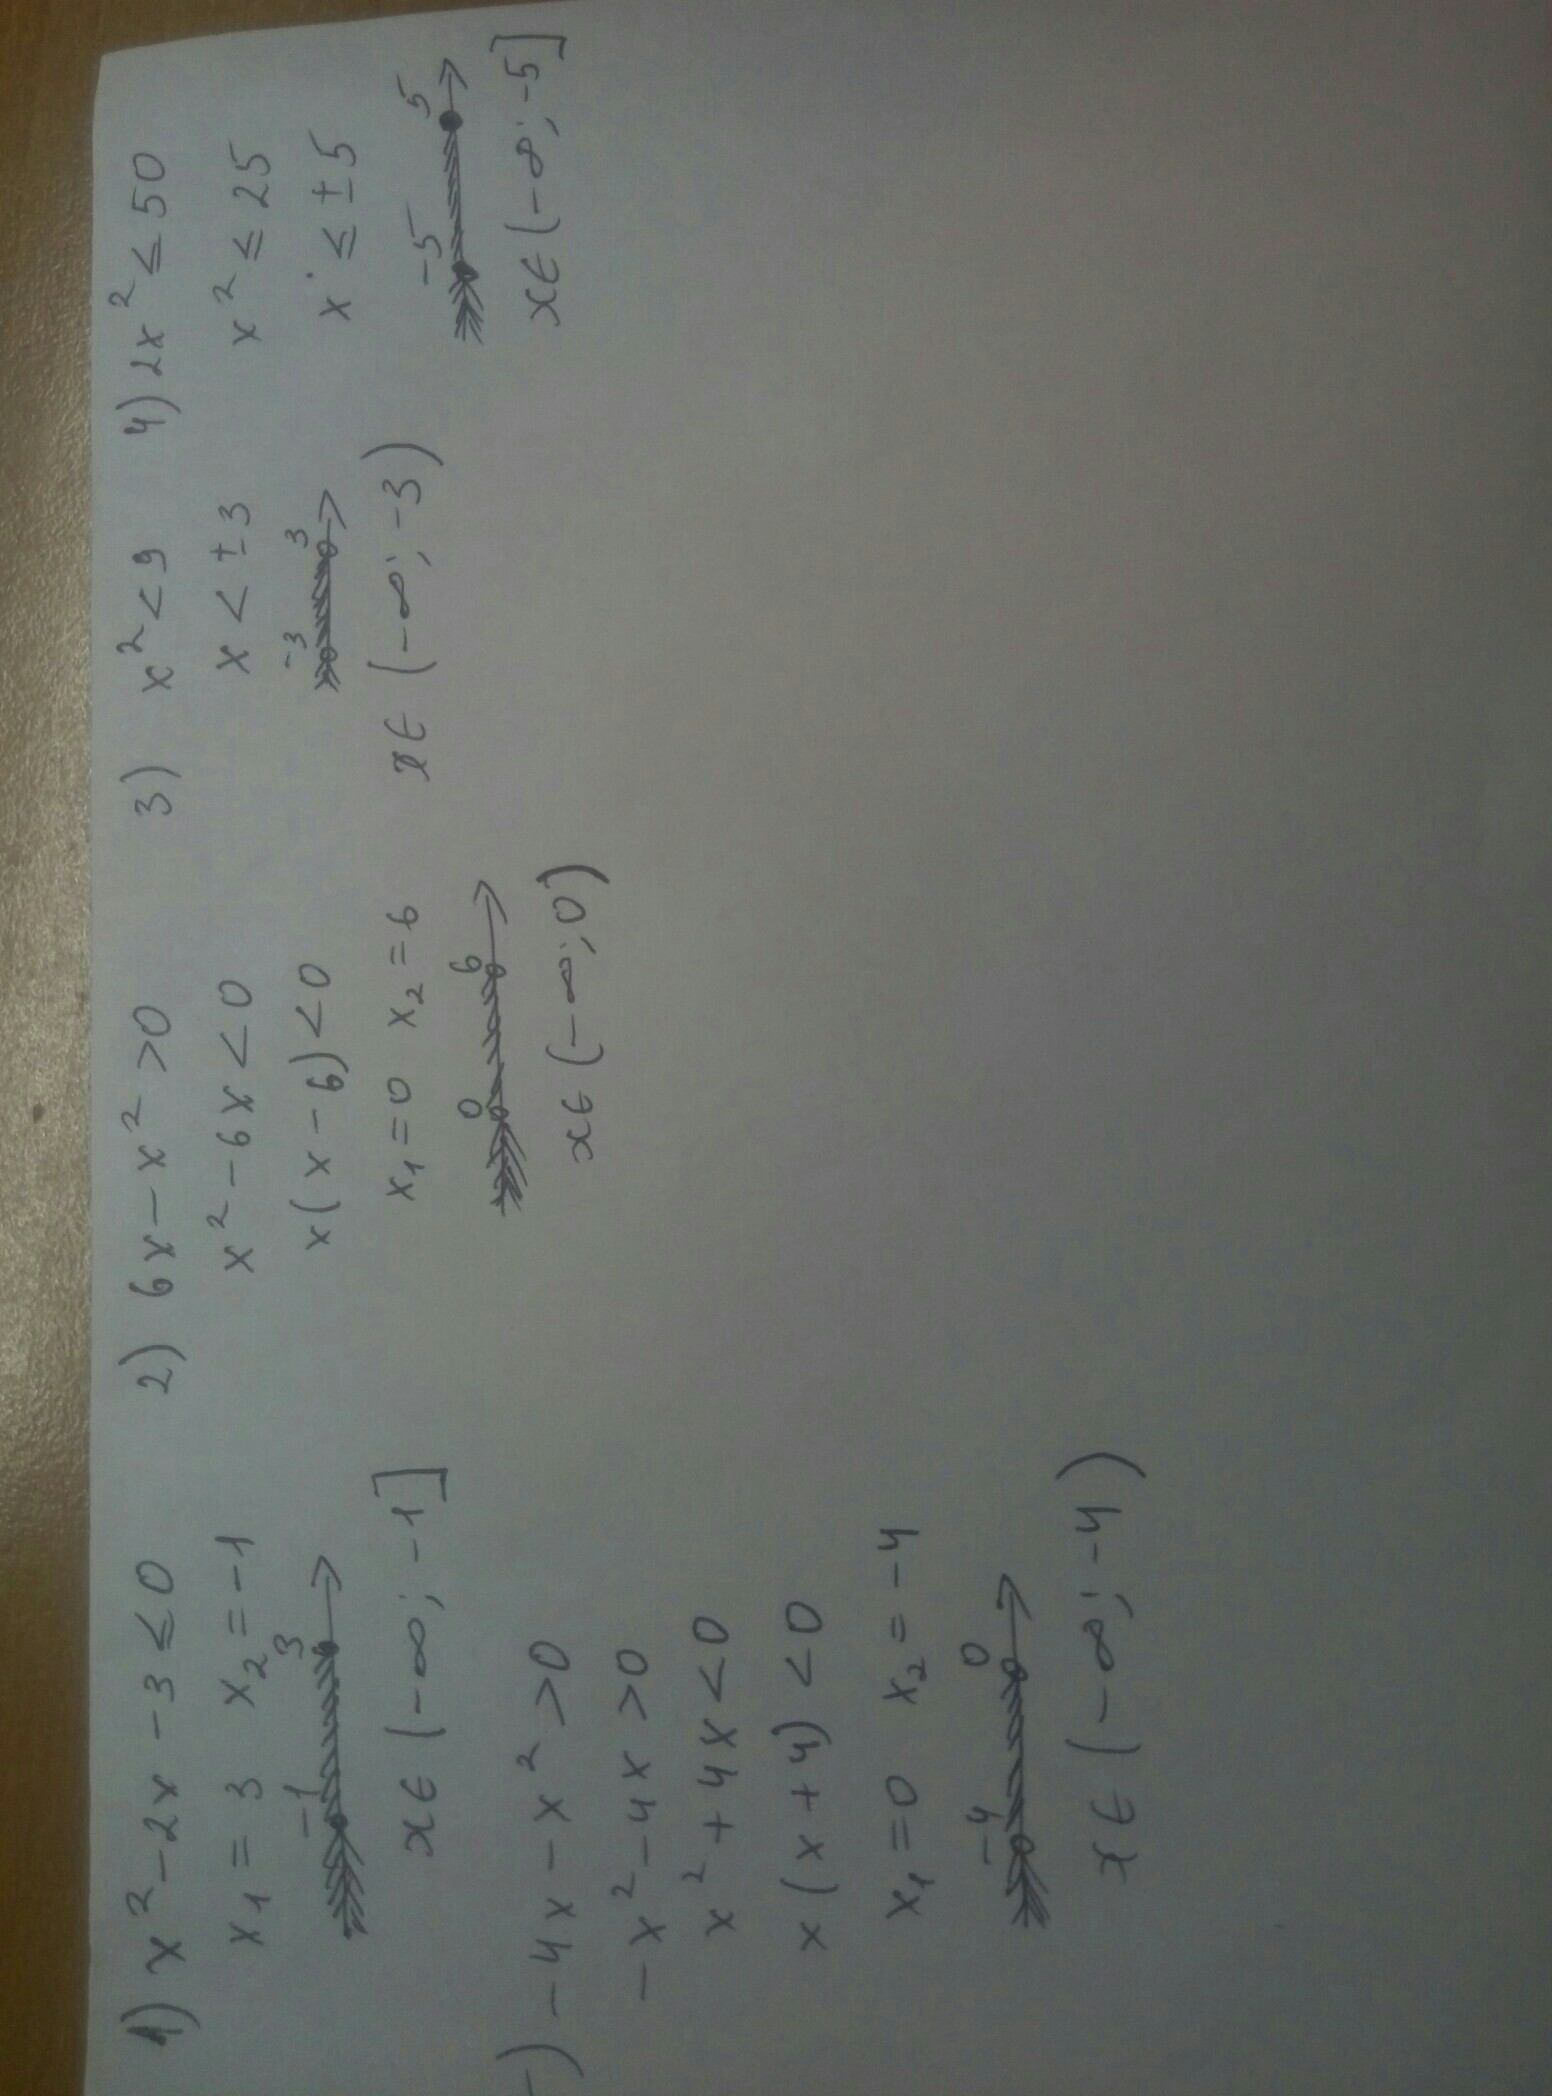 1) x² - 2x - 3 ≤ 0
x₁ = 3 x₂ = -1
-1 3
x ∈ (-∞; -1]
2) 6x - x² > 0
x² - 6x < 0
x(x - 6) < 0
x₁ = 0 x₂ = 6
0 6
x ∈ (-∞; 0)
3) x² < 9
x < ± 3
-3 3
x ∈ (-∞; -3)
4) 2x² ≤ 50
x² ≤ 25
x ≤ ± 5
-5 5
x ∈ (-∞; -5]
) -4x - x² > 0
-x² - 4x > 0
x² + 4x < 0
x(x + 4) < 0
x₁ = 0 x₂ = -4
-4 0
x ∈ (-∞; -4)